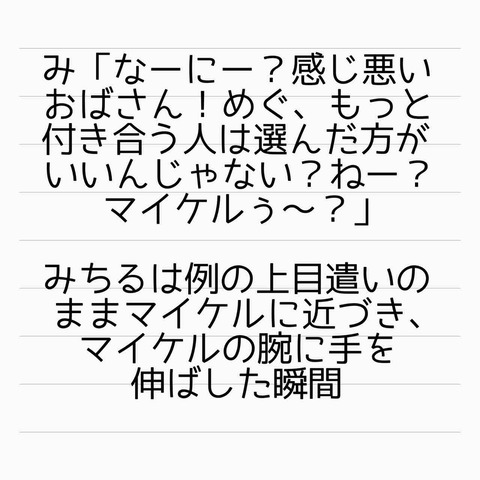 み「なーにー？感じ悪い
おばさん！めぐ、もっと
付き合う人は選んだ方が
いいんじゃない？ねー？
マイケルぅ〜？」
みちるは例の上目遣いの
ままマイケルに近づき、
マイケルの腕に手を
伸ばした瞬間